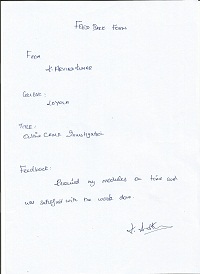 FEED BACK FORM
From
College:
LOYOLA
TITLE:
Online Crime Investigation
Feedback:
Received my modules on time and
was satisfied with the work done.